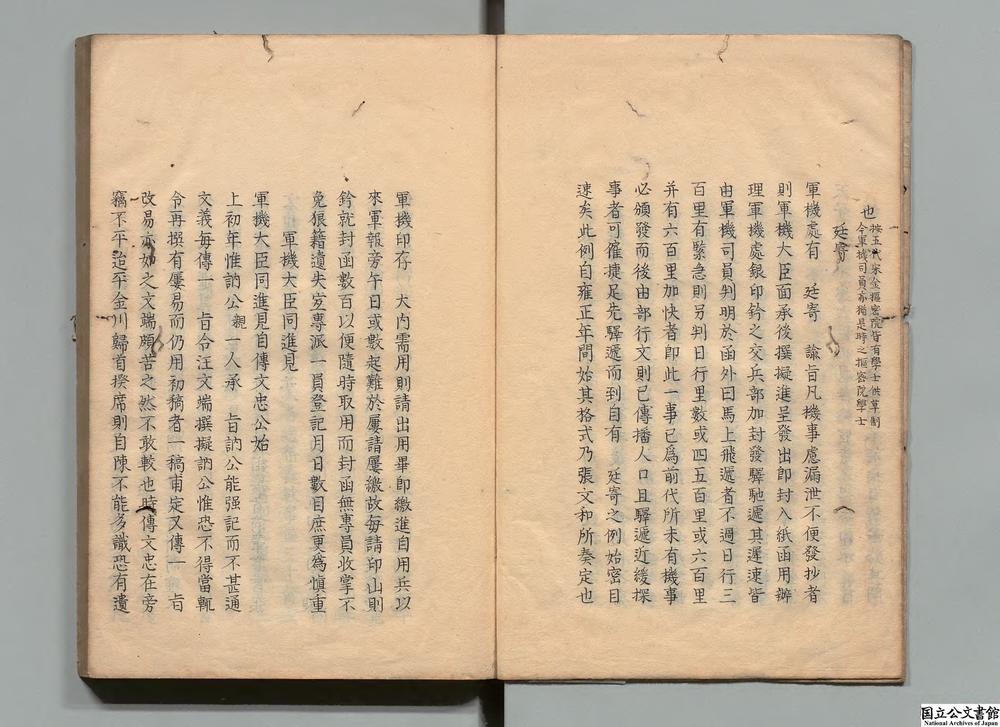 也 按五代宋金樞密院皆有學士供草制
今軍機司員亦猶是時之樞密院學士
廷寄
軍機處有 廷寄 諭旨凡機事慮漏泄不便發抄者
則軍機大臣面承後撰擬進呈發出即封入紙函用辦
理軍機處銀印鈐之交兵部加封發驛馳遞其遲速皆
由軍機司員判明於函外曰馬上飛遞者不過日行三
百里有緊急則另判日行里數或四五百里或六百里
并有六百里加快者即此一事已為前代所未有機事
必頒發而後由部行文則已傳播人口且驛遞近緩探
事者可僱捷足先驛遞而到自有 廷寄之例始密且
速矣此例自雍正年間始其格式乃張文和所奏定也
軍機印存 大內需用則請出用畢即繳進自用兵以
來軍報旁午日或數起難於屢請屢繳故每請印出則
鈐就封函數百以便隨時取用而封函無專員收掌不
免狼籍遺失宜專派一員登記月日數目庶更為慎重
軍機大臣同進見
軍機大臣同進見自傅文忠公始
上初年惟訥公親一人承 旨訥公能强記而不甚通
文義每傳一 旨令汪文端撰擬訥公惟恐不得當輒
令再撰有屢易而仍用初稿者一稿甫定又傳一 旨
改易亦如之文端頗苦之然不敢較也時傅文忠在旁
竊不平迨平金川歸首揆席則自陳不能多識恐有遺
国立公文書館
National Archives of Japan